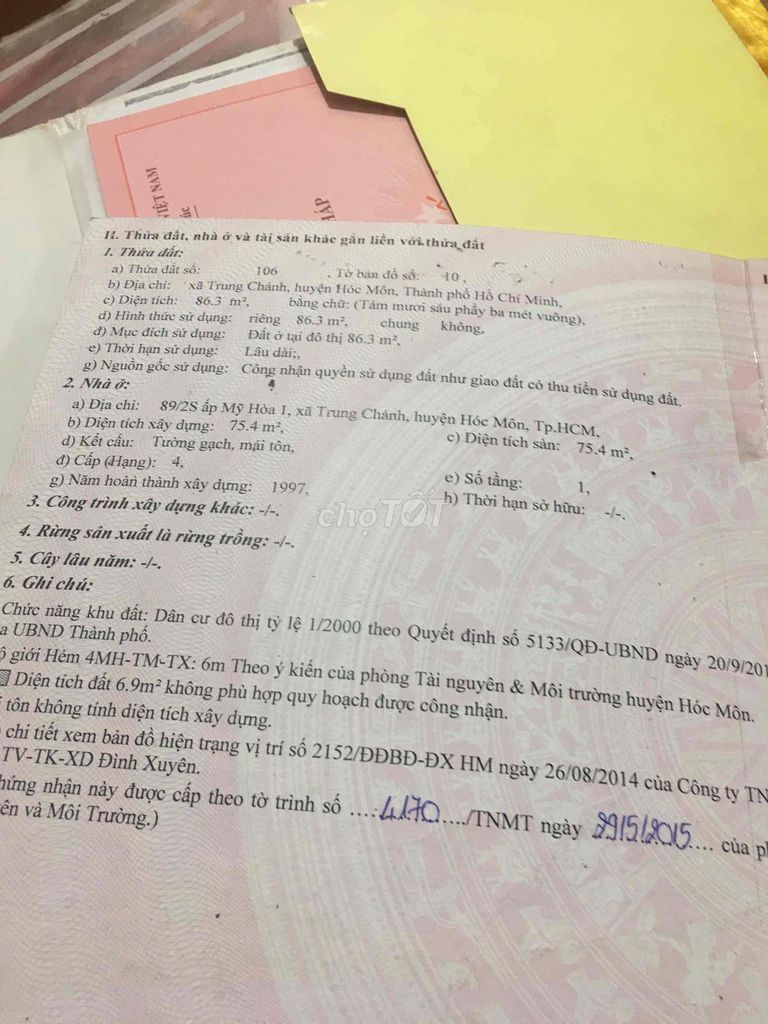 VIỆT NAM
II. Thửa đất, nhà ở và tài sản khác gắn liền với thửa đất
1. Thửa đất:
a) Thửa đất số: 106 , Tờ bản đồ số: 10 ,
b) Địa chỉ: xã Trung Chánh, huyện Hóc Môn, Thành phố Hồ Chí Minh,
c) Diện tích: 86.3 m², bằng chữ: (Tám mươi sáu phẩy ba mét vuông),
d) Hình thức sử dụng: riêng 86.3 m², chung không,
đ) Mục đích sử dụng: Đất ở tại đô thị 86.3 m²,
e) Thời hạn sử dụng: Lâu dài;,
g) Nguồn gốc sử dụng: Công nhận quyền sử dụng đất như giao đất có thu tiền sử dụng đất.
2. Nhà ở:
a) Địa chỉ: 89/2S ấp Mỹ Hòa 1, xã Trung Chánh, huyện Hóc Môn, Tp.HCM,
b) Diện tích xây dựng: 75.4 m², c) Diện tích sàn: 75.4 m²,
d) Kết cấu: Tường gạch, mái tôn,
đ) Cấp (Hạng): 4, e) Số tầng: 1,
g) Năm hoàn thành xây dựng: 1997, h) Thời hạn sở hữu: -/-.
3. Công trình xây dựng khác: -/-.
chợTỐT
4. Rừng sản xuất là rừng trồng: -/-.
5. Cây lâu năm: -/-.
6. Ghi chú:
Chức năng khu đất: Dân cư đô thị tỷ lệ 1/2000 theo Quyết định số 5133/QĐ-UBND ngày 20/9/201
a UBND Thành phố.
ộ giới Hẻm 4MH-TM-TX: 6m Theo ý kiến của phòng Tài nguyên & Môi trường huyện Hóc Môn.
Diện tích đất 6.9m² không phù hợp quy hoạch được công nhận.
tôn không tính diện tích xây dựng.
chi tiết xem bản đồ hiện trạng vị trí số 2152/ĐĐBĐ-ĐX HM ngày 26/08/2014 của Công ty TN
TV-TK-XD Đình Xuyên.
hứng nhận này được cấp theo tờ trình số ....4170..../TNMT ngày 29/5/2015.... của p
ên và Môi Trường.)